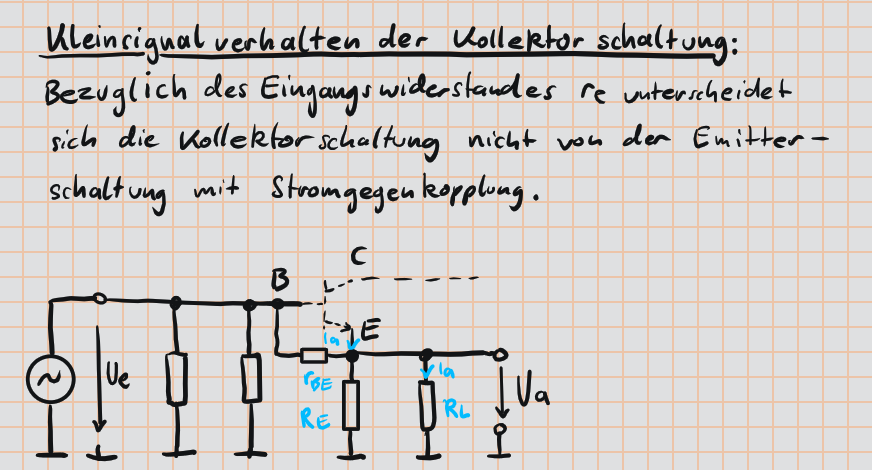 Kleinsignalverhalten der Kollektorschaltung:
Bezuglich des Eingangswiderstandes re unterscheidet
sich die Kollektorschaltung nicht von der Emitter-
schaltung mit Stromgegenkopplung.
C
B
E
ia
Ue
rBE
ia
Ua
RE
RL